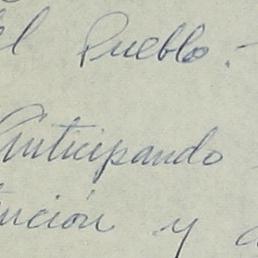 el Pueblo.-
Anticipando
nción y a